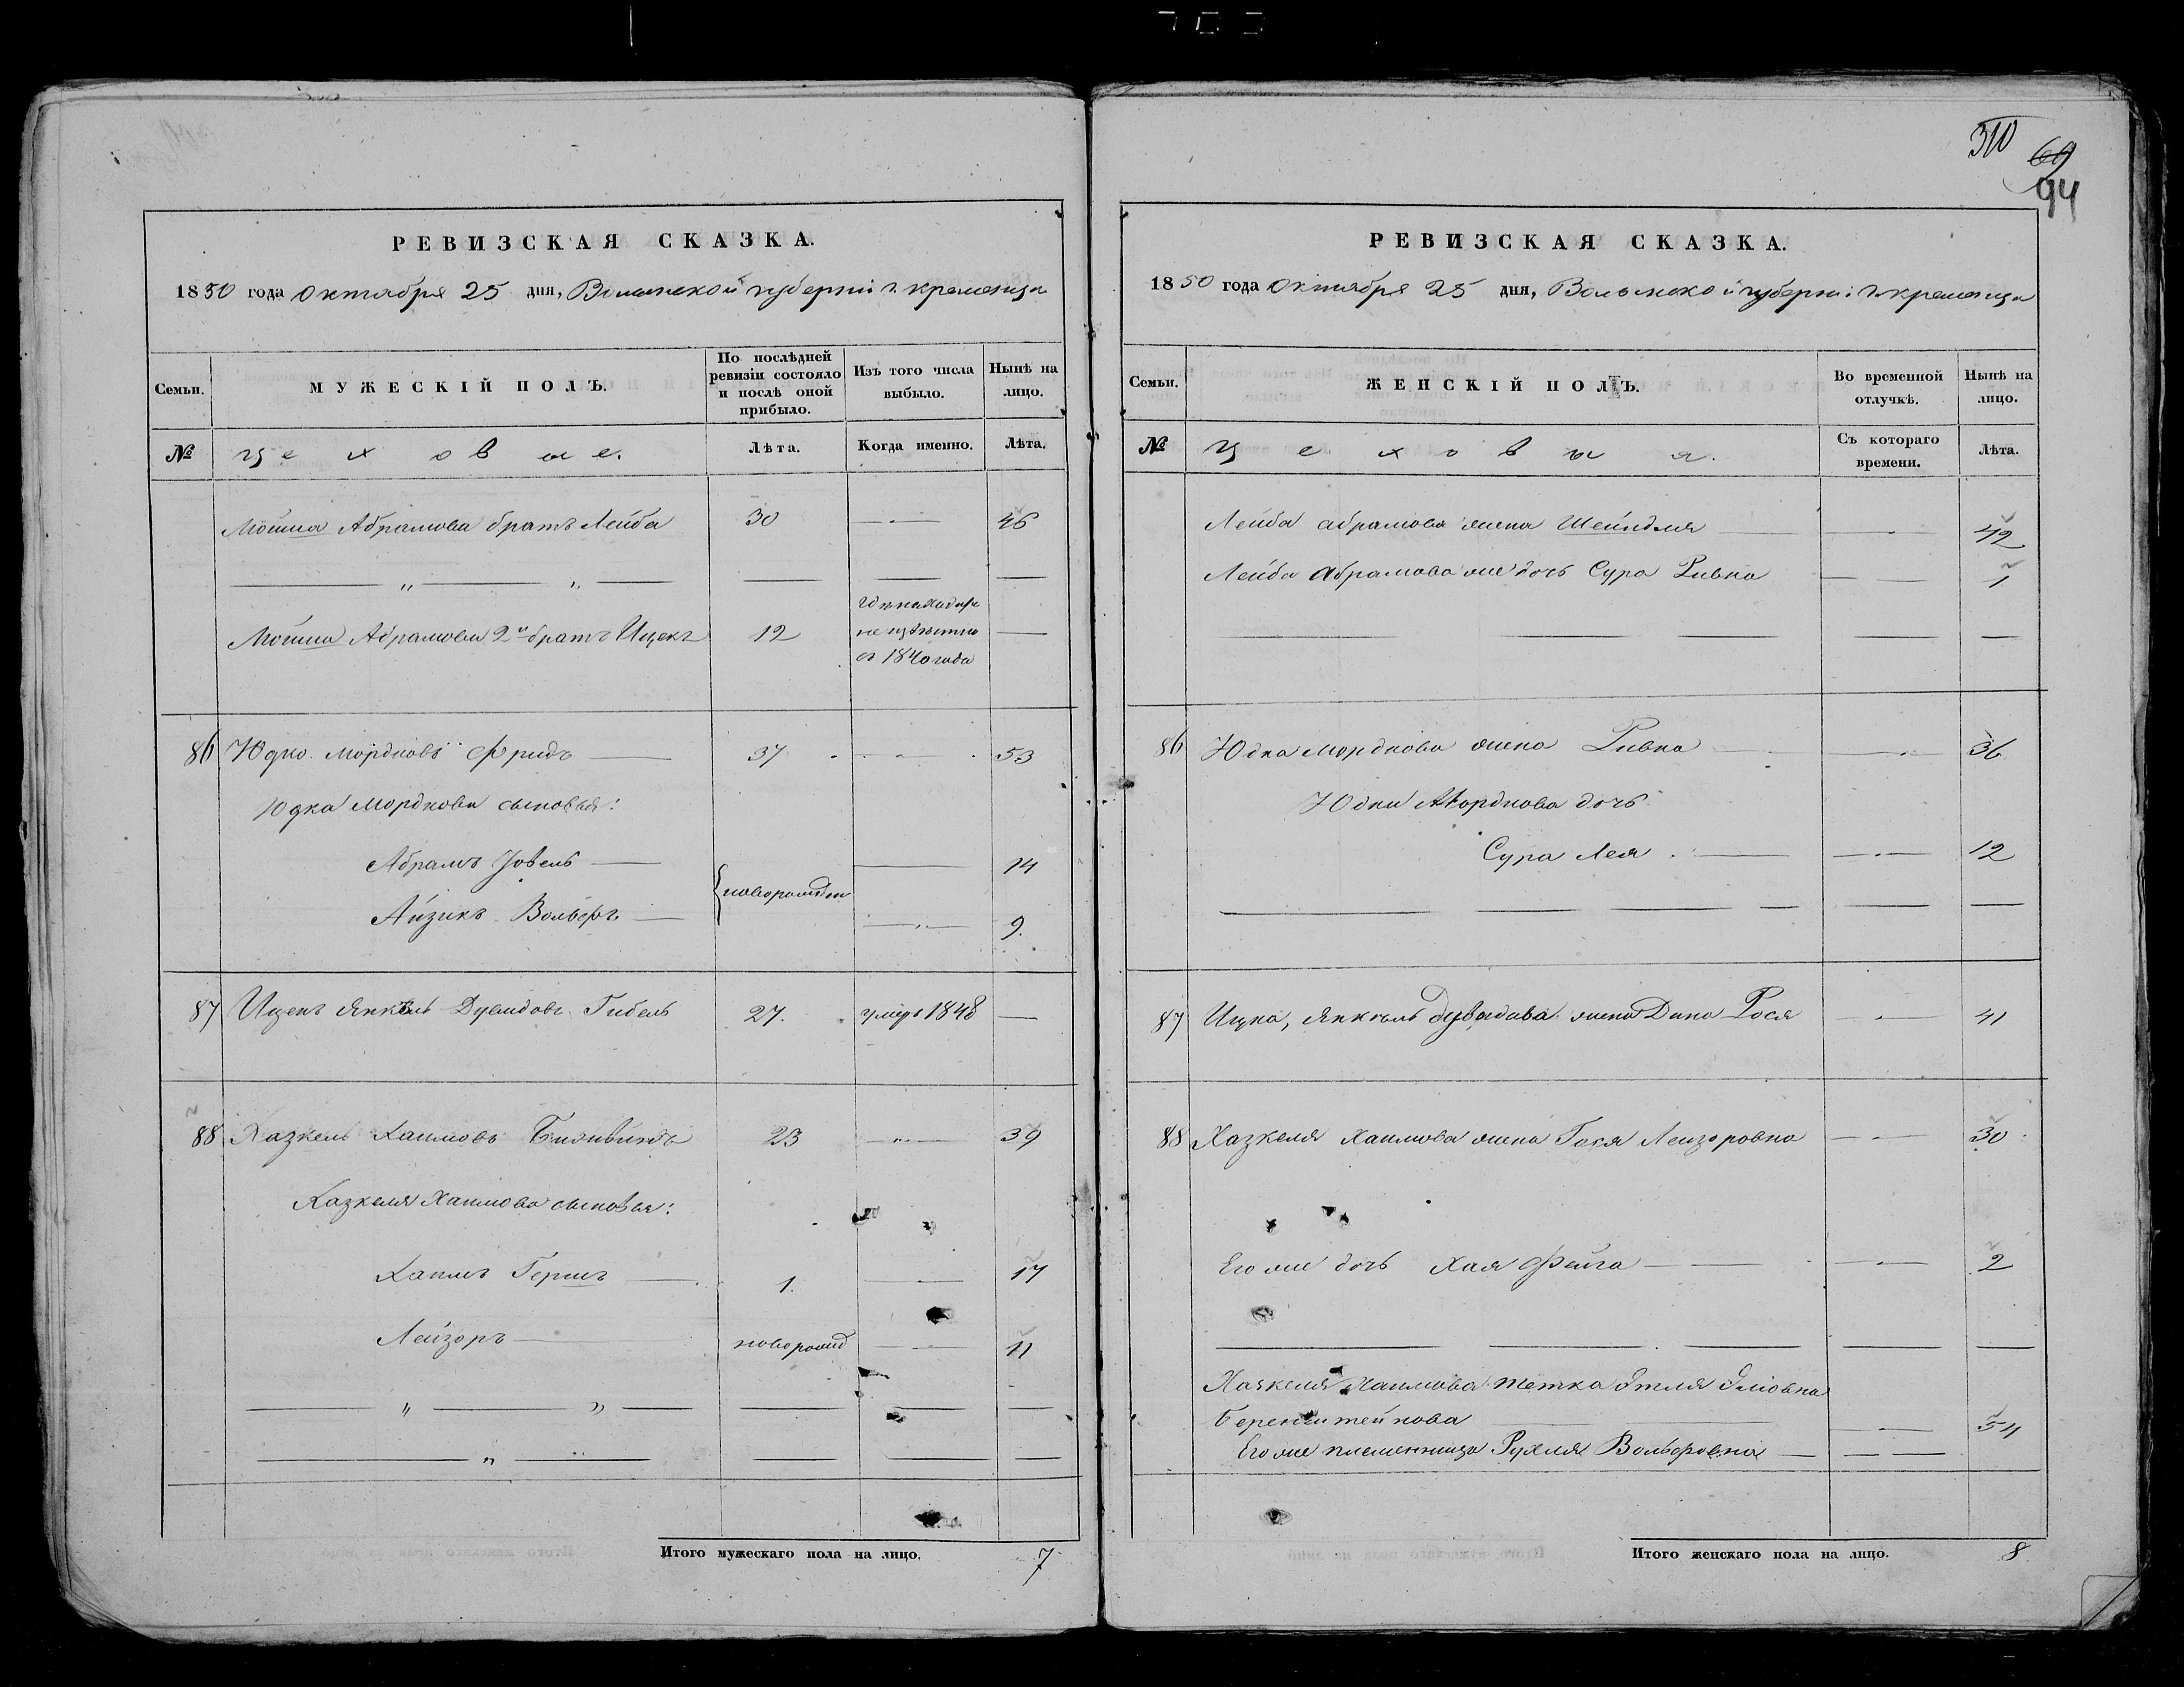 РЕВИЗСКАЯ СКАЗКА.
1850 года Октября 25 дня, Волынской губерніи г. кременца
Семьи.
МУЖЕСКІЙ ПОЛЪ.
По послѣдней ревизіи состояло и послѣ оной прибыло.
Изъ того числа выбыло.
Нынѣ на лицо.
№ цеховые. Лѣта. Когда именно. Лѣта.
Мошка Абрамова братъ Лейба 30 46
Мошка Абрамова 2й братъ Ицекъ 12
где находится
не извѣстно
съ 1840 года
86 Юдко Мордковъ Фридъ 37 53
Юдка Мордкова сыновья:
Абрамъ Іовель 14
новорожден
Айзикъ Вольфъ 9.
87 Ицекъ Янкель Дувидовъ Гибель 27. умеръ 1848
88 Хазкель Хаимовъ 23 39
Хазкеля Хаимова сыновья:
Хаимъ Гершъ 1. 17
Лейзоръ новорожд 11
Итого мужескаго пола на лицо. 7
310
69
94
РЕВИЗСКАЯ СКАЗКА.
1850 года Октября 25 дня, Волынской губерніи г. кременца
Семьи.
ЖЕНСКІЙ ПОЛЪ.
Во временной отлучкѣ.
Нынѣ на лицо.
№ цеховыя. Съ котораго времени. Лѣта.
Лейба Абрамова жена Шейндля 42
Лейба Абрамова же дочь Сура Ривка 1
86 Юдка Мордкова жена Ривка 36
Юдки Мордкова дочь
Сура Лея 12
87 Ицка, Янкель Дувидова жена Дина Рося 41
88 Хазкеля Хаимова жена Гося Лейзоровна 30
Его же дочь Хая Фейга 2
Хазкеля Хаимова тетка Этля
Беренштейнова 54
Его же племенница Рухля Вольфовна
Итого женскаго пола на лицо. 8